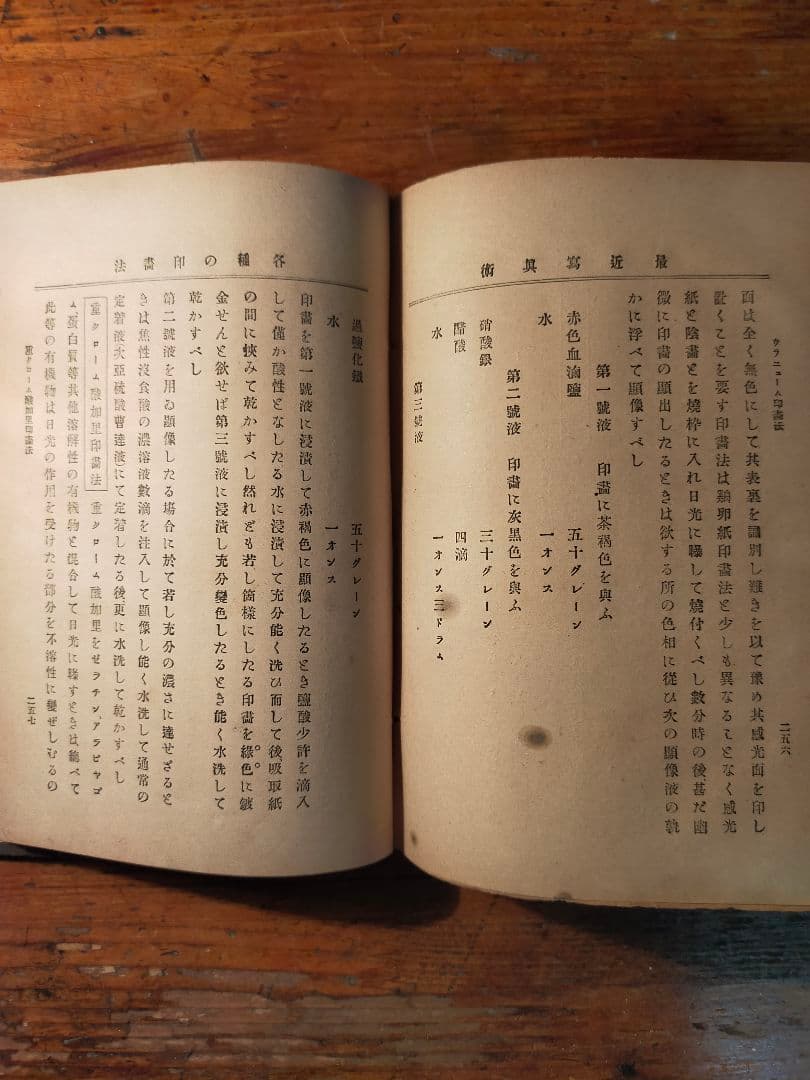 最近寫眞術
ウラニューム印畫法
面は全く無色にして其表裏を識別し難きを以て豫め其感光面を印し
置くことを要す印畫法は鷄卵紙印畫法と少しも異なることなく感光
紙と陰畫とを燒枠に入れ日光に曝して燒付くべし數分時の後、甚だ幽
微に印畫の顯出したるときは欲する所の色相に從ひ次の顯像液の孰
かに浮べて顯像すべし
第一號液 印畫に茶褐色を與ふ
赤色血滷鹽 五十グレーン
水 一オンス
第二號液 印畫に灰黑色を與ふ
硝酸銀 三十グレーン
醋酸 四滴
水 一オンス三ドラム
第三號液
二五六
各種の印畫法
過鹽化鐵 五十グレーン
水 一オンス
印畫を第一號液に浸漬して赤褐色に顯像したるとき鹽酸少許を滴入
して僅か酸性となしたる水に浸漬して充分能く洗ひ而して後、吸取紙
の間に挾みて乾かすべし然れども若し箇樣にしたる印畫を綠色に鍍
金せんと欲せば第三號液に浸漬し充分變色したるとき能く水洗して
乾かすべし
第二號液を用ゐ顯像したる塲合に於て若し充分の濃さに達せざると
きは焦性沒食酸の濃溶液數滴を注入して顯像し能く水洗して通常の
定着液(次亞硫酸曹達液)にて定着したる後更に水洗して乾かすべし
重クローム酸加里印畫法 重クローム酸加里をゼラチン、アラビヤゴ
ム、蛋白質等其他溶解性の有機物と混合して日光に曝すときは總べて
此等の有機物は日光の作用を受けたる部分を不溶性に變ぜしむるの
重クローム酸加里印畫法
二五七